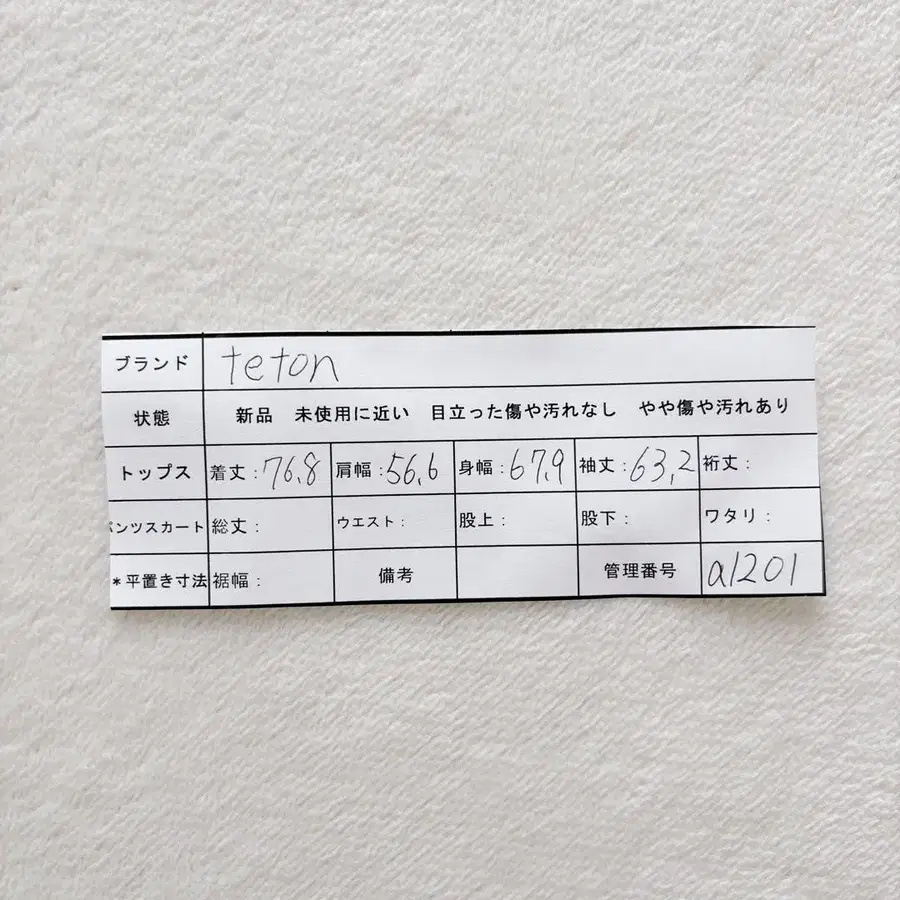 ブランド teton
状態 新品 未使用に近い 目立った傷や汚れなし やや傷や汚れあり
トップス 着丈:76.8 肩幅:56.6 身幅:67.9 袖丈:63.2 裄丈:
パンツスカート 総丈: ウエスト: 股上: 股下: ワタリ:
*平置き寸法 裾幅: 備考 管理番号 a1201